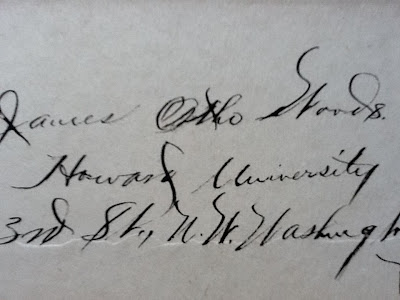 James Otho Woods.
Howard University
3rd St., N.W. Washingt